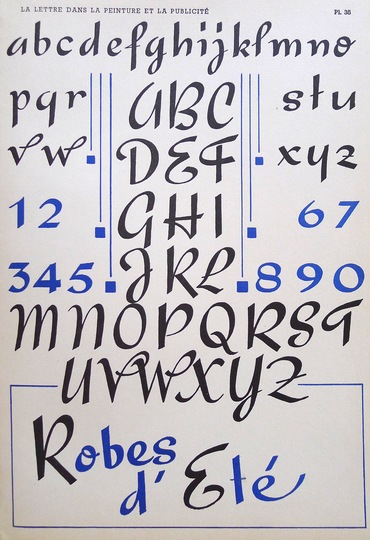 LA LETTRE DANS LA PEINTURE ET LA PUBLICITÉ PL. 35
abcdefghijklmno
pqr ABC stu
vw DEF xyz
12 GHI 67
345 JKL 890
MNOPQRST
UVWXYZ
Robes
d'Eté